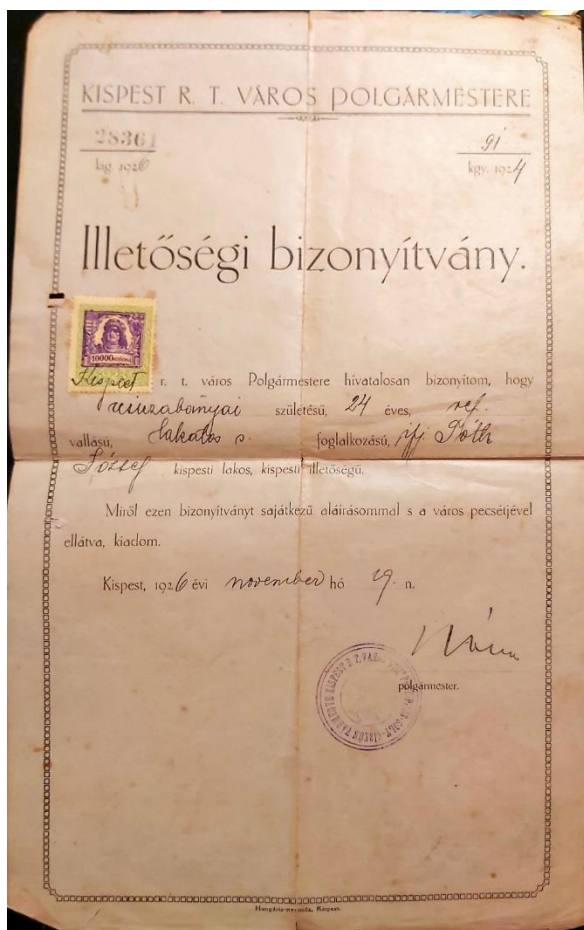 KISPEST R. T. VÁROS POLGÁRMESTERE
28361
kig. 1926
91
kgy. 1924
Illetőségi bizonyítvány.
10000 KORONA
Kispest r. t. város Polgármestere hivatalosan bizonyítom, hogy
születésü, 24 éves, ref.
vallásu, lakatos s. foglalkozásu, ifj Tóth
József kispesti lakos, kispesti illetőségü.
Miről ezen bizonyítványt sajátkezű aláírásommal s a város pecsétjével
ellátva, kiadom.
Kispest, 1926 évi november hó 19. n.
polgármester.
KISPEST R. T. VÁROS
Hungária-nyomda, Kispest.